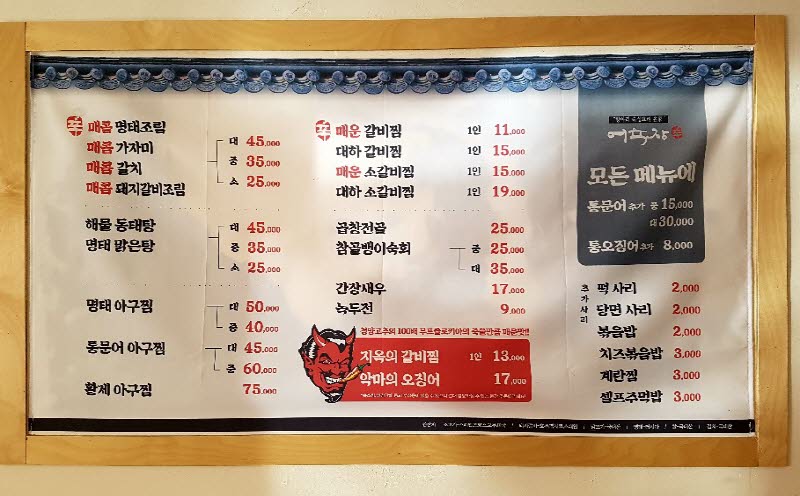 辛 매콤 명태조림
매콤 가자미
매콤 갈치
매콤 돼지갈비조림
대 45,000
중 35,000
소 25,000
해물 동태탕
명태 맑은탕
대 45,000
중 35,000
소 25,000
명태 아구찜
대 50,000
중 40,000
통문어 아구찜
대 45,000
중 60,000
활제 아구찜 75,000
辛 매운 갈비찜 1인 11,000
대하 갈비찜 1인 15,000
매운 소갈비찜 1인 15,000
대하 소갈비찜 1인 19,000
곱창전골 25,000
참골뱅이숙회
중 25,000
대 35,000
간장새우 17,000
녹두전 9,000
청양고추의 100배 부트졸로키아의
지옥의 갈비찜 1인 13,000
악마의 오징어 17,000
모든 메뉴에
통문어 추가 중 15,000
대 30,000
통오징어 추가 8,000
추가사리
떡 사리 2,000
당면 사리 2,000
볶음밥 2,000
치즈볶음밥 3,000
계란찜 3,000
셀프주먹밥 3,000